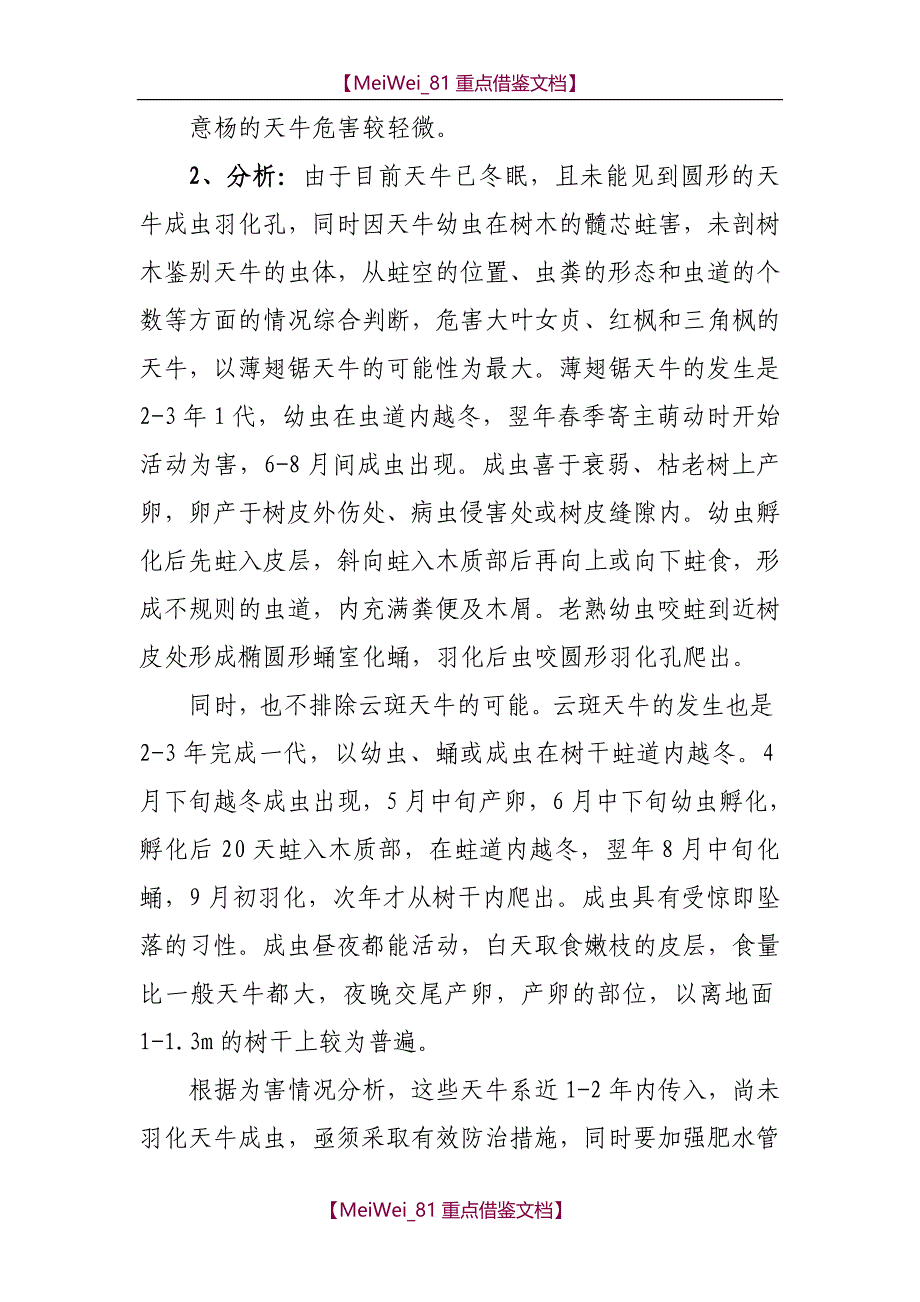 【MeiWei_81重点借鉴文档】
意杨的天牛危害较轻微。
2、分析：由于目前天牛已冬眠，且未能见到圆形的天
牛成虫羽化孔，同时因天牛幼虫在树木的髓芯蛀害，未剖树
木鉴别天牛的虫体，从蛀空的位置、虫粪的形态和虫道的个
数等方面的情况综合判断，危害大叶女贞、红枫和三角枫的
天牛，以薄翅锯天牛的可能性为最大。薄翅锯天牛的发生是
2-3年1代，幼虫在虫道内越冬，翌年春季寄主萌动时开始
活动为害，6-8月间成虫出现。成虫喜于衰弱、枯老树上产
卵，卵产于树皮外伤处、病虫侵害处或树皮缝隙内。幼虫孵
化后先蛀入皮层，斜向蛀入木质部后再向上或向下蛀食，形
成不规则的虫道，内充满粪便及木屑。老熟幼虫咬蛀到近树
皮处形成椭圆形蛹室化蛹，羽化后虫咬圆形羽化孔爬出。
同时，也不排除云斑天牛的可能。云斑天牛的发生也是
2-3年完成一代，以幼虫、蛹或成虫在树干蛀道内越冬。4
月下旬越冬成虫出现，5月中旬产卵，6月中下旬幼虫孵化，
孵化后20天蛀入木质部，在蛀道内越冬，翌年8月中旬化
蛹，9月初羽化，次年才从树干内爬出。成虫具有受惊即坠
落的习性。成虫昼夜都能活动，白天取食嫩枝的皮层，食量
比一般天牛都大，夜晚交尾产卵，产卵的部位，以离地面
1-1.3m的树干上较为普遍。
根据为害情况分析，这些天牛系近1-2年内传入，尚未
羽化天牛成虫，亟须采取有效防治措施，同时要加强肥水管
【MeiWei_81重点借鉴文档】